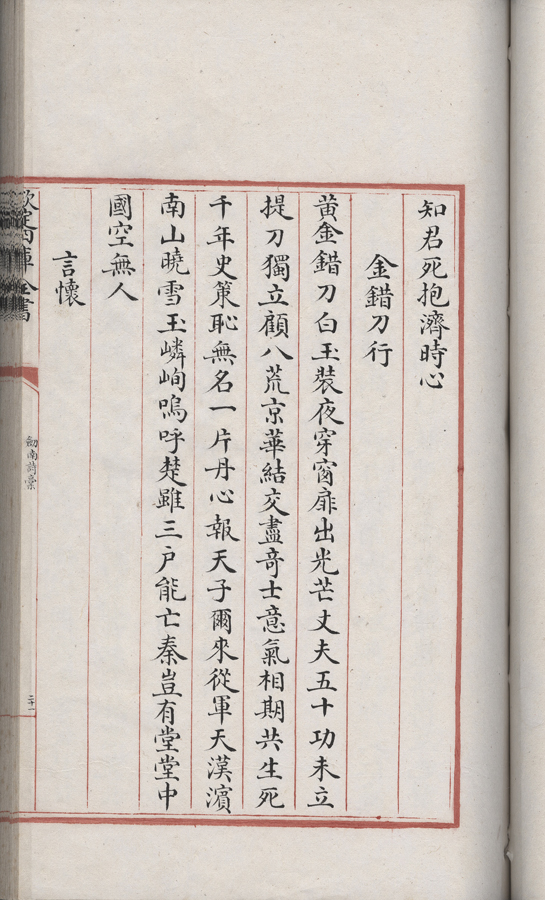 知君死抱濟時心
金錯刀行
黄金錯刀白玉裝夜穿窗扉出光芒丈夫五十功未立
提刀獨立顧八荒京華結交盡竒士意氣相期共生死
千年史策恥無名一片丹心報天子爾來從軍天漢濱
南山曉雪玉嶙峋嗚呼楚雖三户能亡秦豈有堂堂中
國空無人
言懷
欽定四庫全書
劒南詩藁